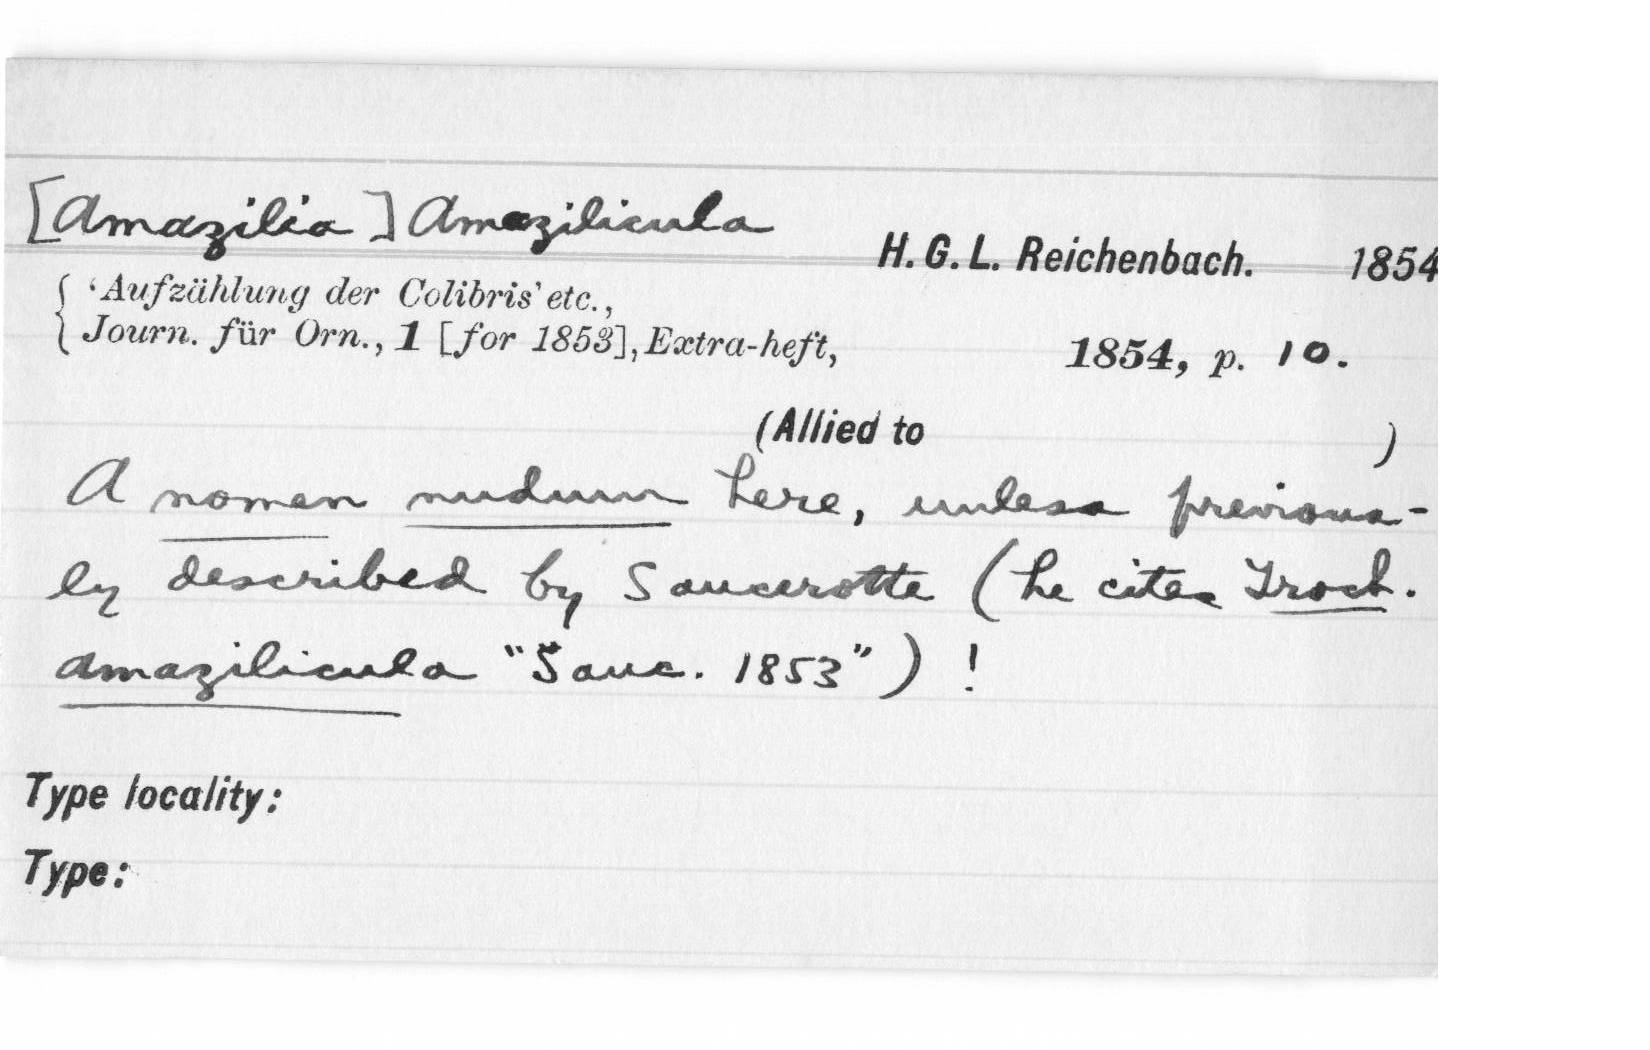 [Amazilia] Amazilicula
H. G. L. Reichenbach. 1854
{ ‘Aufzählung der Colibris’ etc.,
Journ. für Orn., 1 [for 1853], Extra-heft, 1854, p. 10.
(Allied to )
A nomen nudum here, unless previous-
ly described by Saucerotte (he cites Troch.
amazilicula "Sauc. 1853") !
Type locality:
Type: